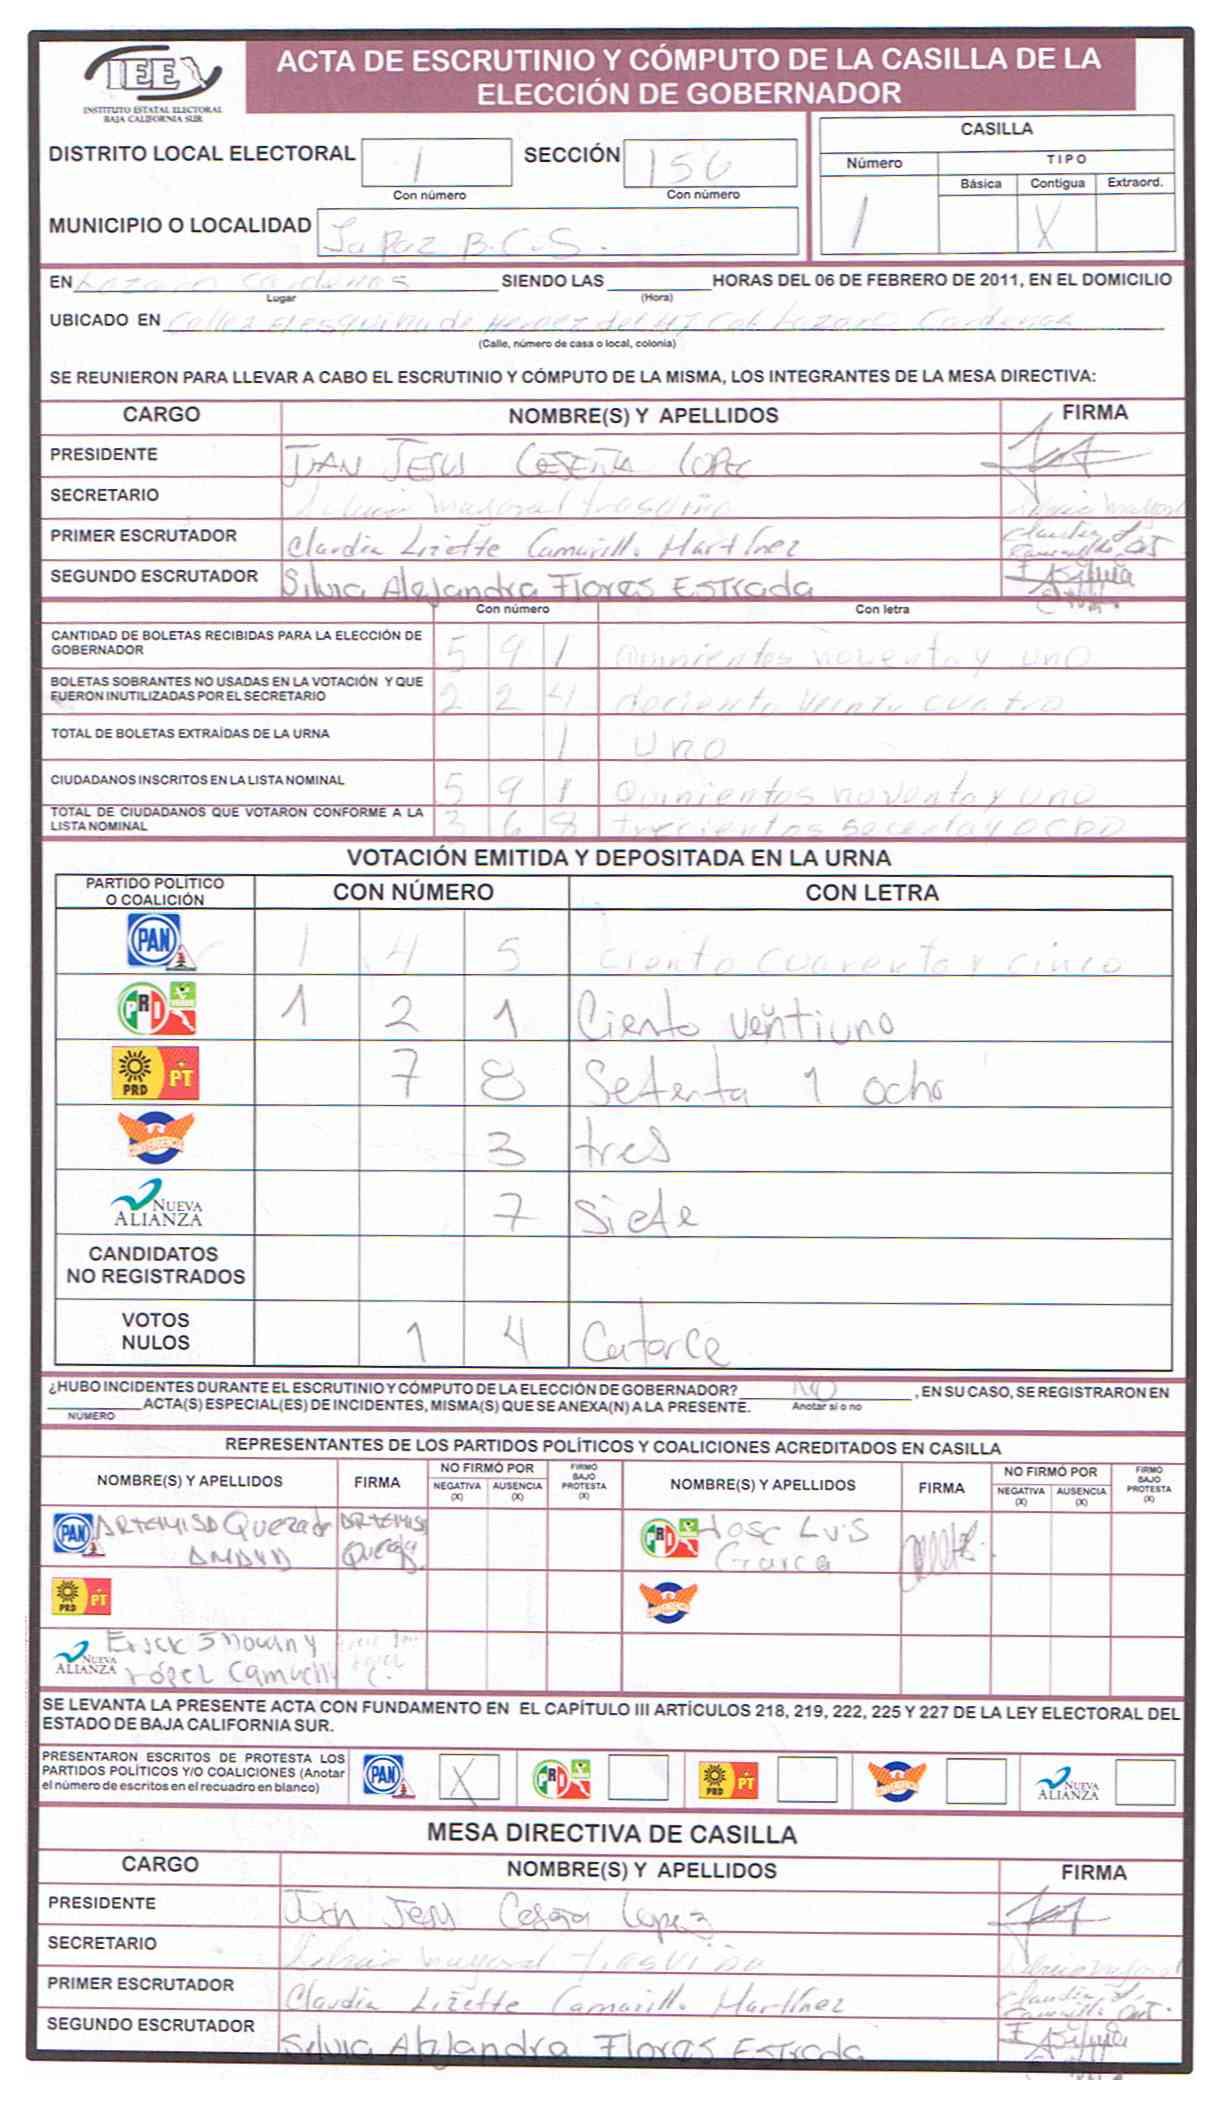 IEE
INSTITUTO ESTATAL ELECTORAL
BAJA CALIFORNIA SUR
ACTA DE ESCRUTINIO Y CÓMPUTO DE LA CASILLA DE LA
ELECCIÓN DE GOBERNADOR
DISTRITO LOCAL ELECTORAL 1 SECCIÓN 156
Con número Con número
MUNICIPIO O LOCALIDAD La Paz B.C.S.
CASILLA
Número TIPO
Básica Contigua Extraord.
1 X
EN Lazaro Cardenas SIENDO LAS HORAS DEL 06 DE FEBRERO DE 2011, EN EL DOMICILIO
Lugar (Hora)
UBICADO EN esquina de del 47 Col Lazaro Cardenas
(Calle, número de casa o local, colonia)
SE REUNIERON PARA LLEVAR A CABO EL ESCRUTINIO Y CÓMPUTO DE LA MISMA, LOS INTEGRANTES DE LA MESA DIRECTIVA:
CARGO NOMBRE(S) Y APELLIDOS FIRMA
PRESIDENTE JUAN JESUS CESEÑA LOPEZ
SECRETARIO mayoral trasviña
PRIMER ESCRUTADOR Claudia Lizette Camarillo Martínez
SEGUNDO ESCRUTADOR Silvia Alejandra Flores Estrada
Con número Con letra
CANTIDAD DE BOLETAS RECIBIDAS PARA LA ELECCIÓN DE
GOBERNADOR 5 9 1 Quinientos noventa y uno
BOLETAS SOBRANTES NO USADAS EN LA VOTACIÓN Y QUE
FUERON INUTILIZADAS POR EL SECRETARIO 2 2 4 dociento veinti cuatro
TOTAL DE BOLETAS EXTRAÍDAS DE LA URNA 1 uno
CIUDADANOS INSCRITOS EN LA LISTA NOMINAL 5 9 1 Quinientos noventa y uno
TOTAL DE CIUDADANOS QUE VOTARON CONFORME A LA
LISTA NOMINAL 3 6 8 trecientos secenta y ocho
VOTACIÓN EMITIDA Y DEPOSITADA EN LA URNA
PARTIDO POLÍTICO
O COALICIÓN CON NÚMERO CON LETRA
PAN 1 4 5 Ciento cuarenta y cinco
PRI 1 2 1 Ciento ventiuno
PRD PT 7 8 Setenta 1 ocho
CONVERGENCIA 3 tres
NUEVA
ALIANZA 7 Siete
CANDIDATOS
NO REGISTRADOS
VOTOS
NULOS 1 4 Catorce
¿HUBO INCIDENTES DURANTE EL ESCRUTINIO Y CÓMPUTO DE LA ELECCIÓN DE GOBERNADOR? NO , EN SU CASO, SE REGISTRARON EN
ACTA(S) ESPECIAL(ES) DE INCIDENTES, MISMA(S) QUE SE ANEXA(N) A LA PRESENTE. Anotar sí o no
NÚMERO
REPRESENTANTES DE LOS PARTIDOS POLÍTICOS Y COALICIONES ACREDITADOS EN CASILLA
NOMBRE(S) Y APELLIDOS FIRMA NO FIRMÓ POR FIRMÓ BAJO PROTESTA (X) NOMBRE(S) Y APELLIDOS FIRMA NO FIRMÓ POR FIRMÓ BAJO PROTESTA (X)
NEGATIVA (X) AUSENCIA (X) NEGATIVA (X) AUSENCIA (X)
PAN ARTEMISA Quezada PRI Jose Luis
Garca
PRD PT CONVERGENCIA
NUEVA ALIANZA Erick
López
SE LEVANTA LA PRESENTE ACTA CON FUNDAMENTO EN EL CAPÍTULO III ARTÍCULOS 218, 219, 222, 225 Y 227 DE LA LEY ELECTORAL DEL
ESTADO DE BAJA CALIFORNIA SUR.
PRESENTARON ESCRITOS DE PROTESTA LOS
PARTIDOS POLÍTICOS Y/O COALICIONES (Anotar
el número de escritos en el recuadro en blanco)
PAN X PRI PRD PT CONVERGENCIA NUEVA ALIANZA
MESA DIRECTIVA DE CASILLA
CARGO NOMBRE(S) Y APELLIDOS FIRMA
PRESIDENTE Juan Jesus Ceseña Lopez
SECRETARIO mayoral trasviña
PRIMER ESCRUTADOR Claudia Lizette Camarillo Martínez
SEGUNDO ESCRUTADOR Silvia Alejandra Flores Estrada